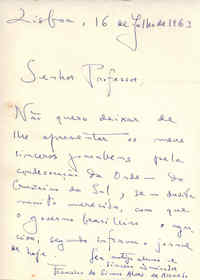 Lisboa, 16 de Julho de 1963
Senhor Professor,
Não quero deixar de
lhe apresentar os meus
sinceros parabens pela
condecoração da Ordem do
Cruzeiro do Sul, sem dúvida
muito merecida, com que
o governo brasileiro o agra-
ciou, segundo informa o jornal
de hoje. Seu antigo aluno e
sincero admirador
Francisco de